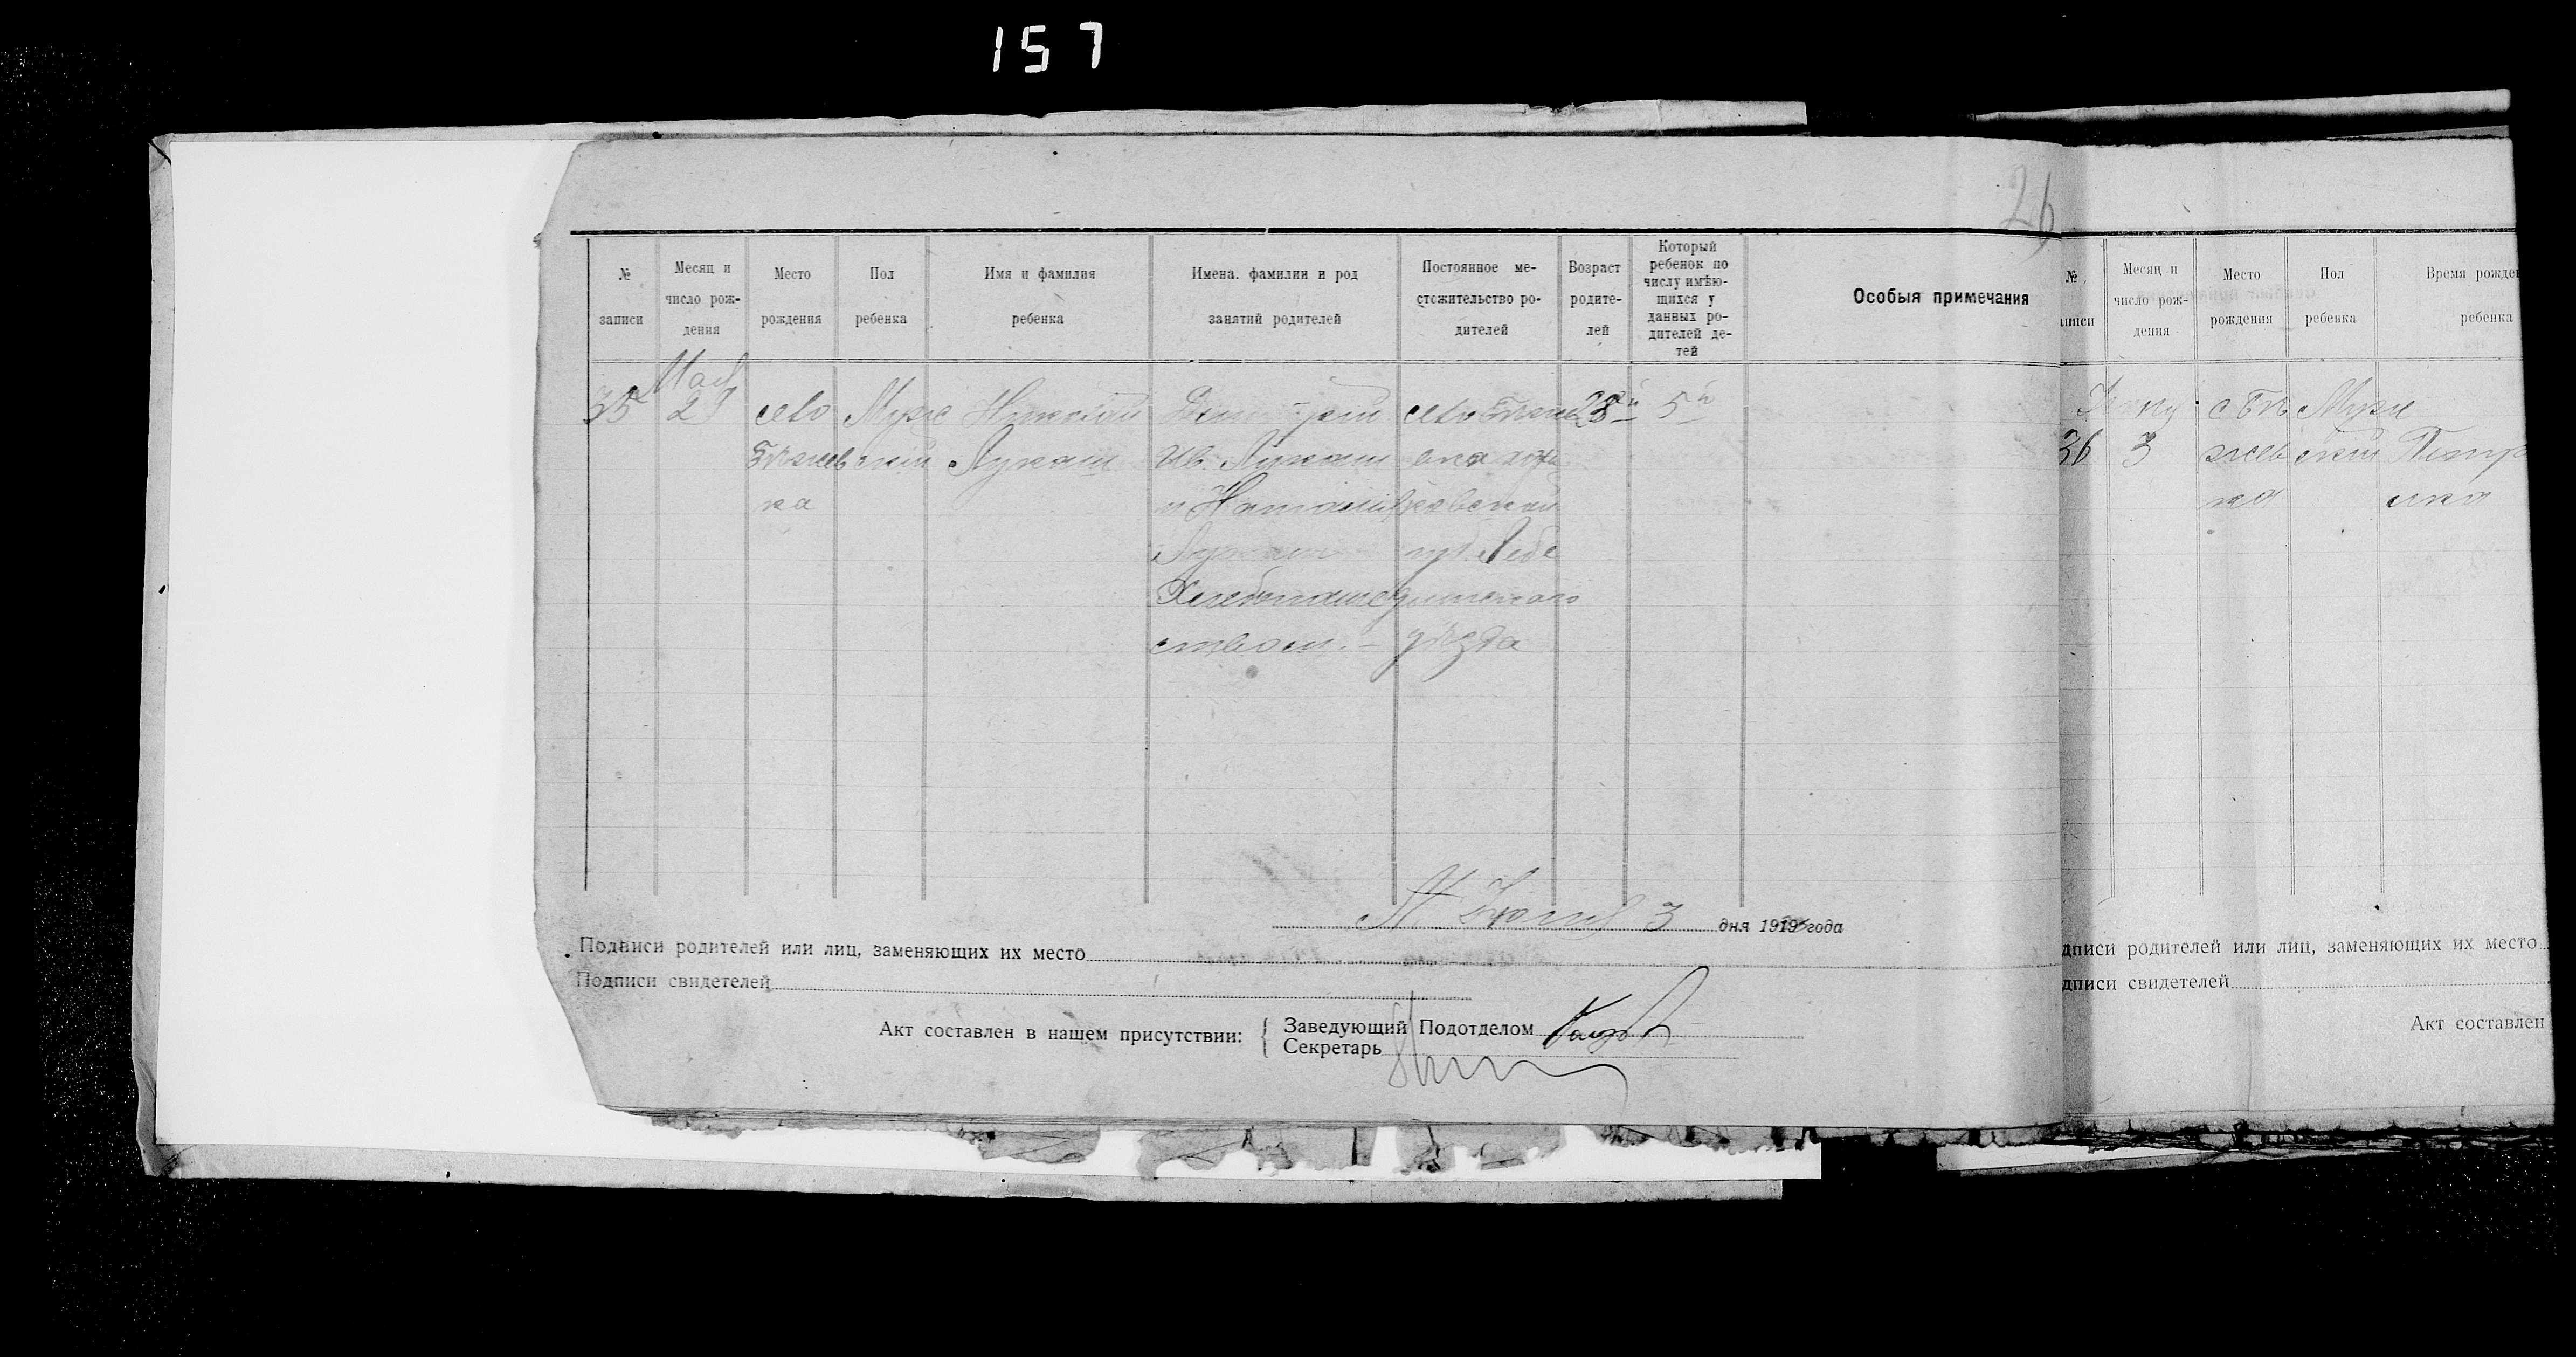 157
26
№ записи
Месяц и число рождения
Место рождения
Пол ребенка
Имя и фамилия ребенка
Имена. фамилии и род занятий родителей
Постоянное местожительство родителей
Возраст родителей
Который ребенок по числу имѣющихся у данных родителей детей
Особыя примечания
35
Мая
село
Бѣжев
ка
Муж
ской
Николай
Лукаш
Дмитрий
Ив. Лукаш
и Наталия
Лукаш
Хлебопаше
ством. –
село Бѣжев
ка харь
ковской
губ. Лебе
динскаго
уѣзда
28
5й
М. Юния 3 дня 1919 года
Подписи родителей или лиц, заменяющих их место
Подписи свидетелей
Акт составлен в нашем присутствии:
Заведующий Подотделом
Секретарь
№ записи
Месяц и число рождения
Место рождения
Пол ребенка
Время рожде
ребенка
36
3
с Бѣ
жев
ка
Муж
ской
дписи родителей или лиц, заменяющих их место
дписи свидетелей
Акт составлен